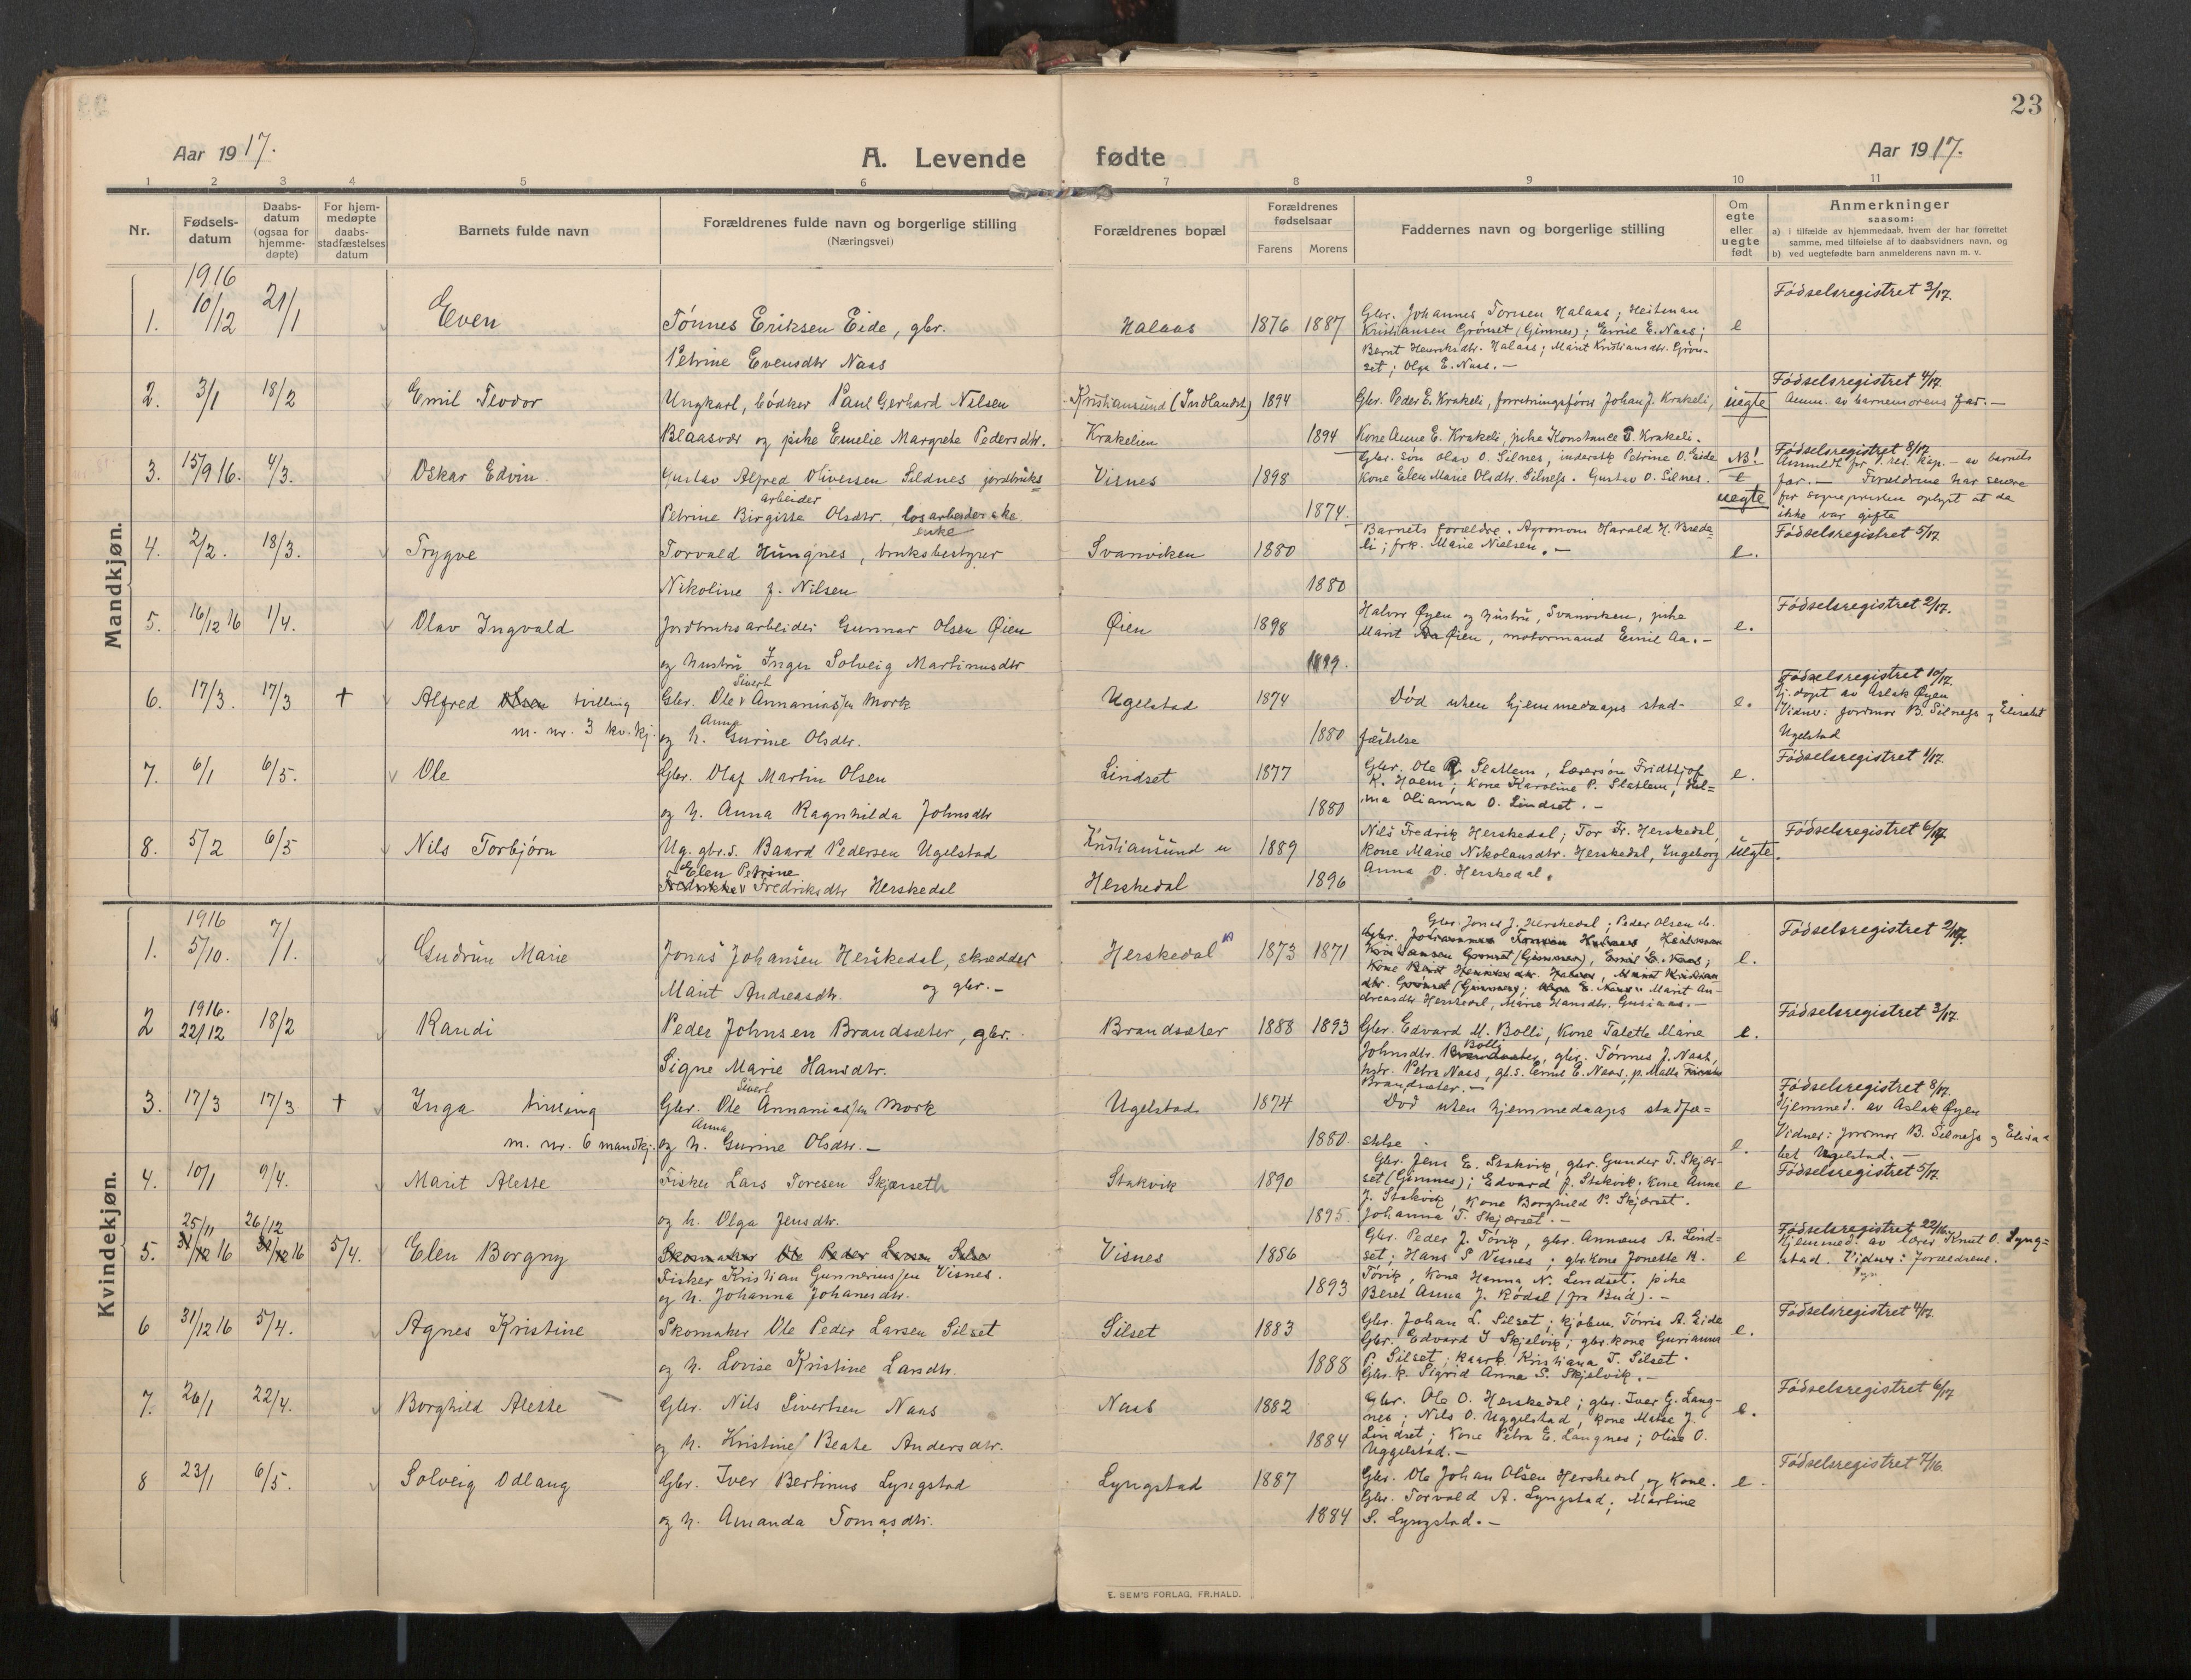 23
Aar 1917.
A. Levende fødte
Aar 1917.
1 2 3 4 5 6 7 8 9 10 11
Nr.
Fødsels-
datum
Daabs-
datum
(ogsaa for
hjemme-
døpte)
For hjem-
medøpte
daabs-
stadfæstelses
datum
Barnets fulde navn
Forældrenes fulde navn og borgerlige stilling
(Næringsvei)
Forældrenes bopæl
Forældrenes
fødselsaar
Farens Morens
Faddernes navn og borgerlige stilling
Om
egte
eller
uegte
født
Anmerkninger
saasom:
a) i tilfælde av hjemmedaab, hvem der har forrettet
samme, med tilføielse af to daabsvidners navn, og
b) ved uegtefødte barn anmelderens navn m. v.
Mandkjøn.
1916
1. 10/12 21/1 Even Tønnes Eriksen Eide, gbr. Halaas 1876 1887 e Fødselsregistret 3/17.
Petrine Evensdtr Naas
Gbr. Johannes Toresen Halaas; Heitman
Kristiansen Grønset (Gimnes); Emil E. Naas;
Bernt Henriksdtr. Halaas; Marit Kristiansdtr. Grøn-
set; Olga E. Naas. —
2. 3/1 18/2 Emil Teodor Ungkarl, bødker Paul Gerhard Nilsen Kristiansund (Indlandet) 1894 Gbr. Peder E. Krakeli, forretningsfører Johan J. Krakeli, uegte Fødselsregistret 4/17.
Anm. av barnemorens far. —
Blaasvær og pike Emelie Margrete Pedersdtr. Krakelien 1894 Kone Anne E. Krakeli, pike Konstance P. Krakeli.
3. 15/9 16. 4/3. Oskar Edvin Gustav Alfred Oliversen Sildnes jordbruks=
arbeider Visnes 1898 Gbr. søn Olav O. Silnes, inderstk Petrine O. Eide NB! Fødselsregistret 8/17
Kone Elen Marie Olsdtr. Silnes. Gustav O. Silnes. e
uegte
Anmeldt for res. kap. — av barnets
far. — Forældrene har senere
for sognepresten oplyst at de
ikke var gifte
Petrine Birgitte Olsdtr. løsarbeiderske
enke 1874.
4. 2/2. 18/3. Trygve Torvald Hungnes, bruksbestyrer Svanviken 1880 Barnets forældre. Agronom Harald H. Brede-
li; frk. Marie Nielsen. — e. Fødselsregistret 5/17.
Nikoline f. Nilsen 1880
5. 16/12 16 1/4. Olav Ingvald Jordbruksarbeider Gunnar Olsen Øien Øien 1898 Halvor Øyen og hustru, Svanviken, pike
Marit Øien, motormand Emil Aa. — e. Fødselsregistret 2/17.
og hustru Inger Solveig Martinusdtr 1899.
6. 17/3. 17/3 + Alfred tvilling
m. nr. 3 kv. kj. Gbr. Ole Sivert Annaniassen Mork Ugelstad 1874 Død uten hjemmedaaps stad-
fæstelse e. Fødselsregistret 10/17.
Hj. døpt av Aslak Øyen
Vidner: jormor B. Silnes og Elisabet
Ugelstad
og h. Anna Gurine Olsdtr. 1880
7. 6/1 6/5. Ole Gbr. Olaf Martin Olsen Lindset 1877 Gbr. Ole P. Slatlem, Lærersøn Fridthjof
K. Hoem; Kone Karoline P. Slatlem; Hel=
ma Olianna O. Lindset. — e. Fødselsregistret 1/17.
og h. Anna Ragnhilda Johnsdtr 1880
8. 5/2 6/5 Nils Torbjørn Ug. gbr.s. Baard Pedersen Ugelstad Kristiansund n 1889 Nils Fredrik Herskedal; Tor Fr. Herskedal,
Kone Marie Nikolausdtr. Herskedal, Ingeborg
Anna O. Herskedal. uegte. Fødselsregistret 6/17.
Elen Petrine
Fredriksdtr Herskedal Herskedal 1896
Kvindekjøn.
1916
1. 5/10. 7/1. Gudrun Marie Jonas Johansen Herskedal, skrædder
og gbr. — Herskedal 1873 1871 e. Fødselsregistret 2/17.
Marit Andreasdtr.
Gbr. Jonas J. Herskedal; Peder Olsen
Marit An-
dreasdtr Herskedal, Marie Hansdtr. Gusiaas. —
1916.
2 22/12 18/2 Randi Peder Johnsen Brandsæter, gbr. Brandsæter 1888 1893 Gbr. Edvard M. Bolli, Kone Talette Marie
Johnsdtr. Bolli, gbr. Tønnes J. Naas,
Petra Naas, gb.s. Emil E. Naas, p. Malla
Brandsæter. — e. Fødselsregistret 3/17.
Signe Marie Hansdtr.
3. 17/3 17/3 + Inga tvilling
m. nr. 6 mandkj. Gbr. Ole Sivert Annaniassen Mork Ugelstad 1874 Død uten hjemmedaaps stadfæ=
stelse. e. Fødselsregistret 8/17
Hjemmed. av Aslak Øyen
Vidner: jormor B. Silnes og Elisa=
bet Ugelstad. —
og h. Anna Gurine Olsdtr. — 1880.
4. 10/1 9/4. Marit Alette Fisker Lars Toresen Skjærseth Stakvik 1890 Gbr. Jens E. Stakvik, gbr. Gunder T. Skjær-
set (Gimnes); Edvard J. Stakvik. Kone Anne
J. Stakvik, Kone Borghild P. Skjærset.
Johanna T. Skjærset. — e Fødselsregistret 5/17.
og h. Olga Jensdtr. 1895.
5. 25/11 16 26/12 16 5/4. Elen Borgny Skomaker Ole Peder Larsen
Fisker Kristian Gunneriussen Visnes. Visnes 1886 Gbr. Peder J. Tøvik, gbr. Annæus A. Lind-
set; Hans S Visnes; gbr.kone Jonette H.
Tøvik, Kone Hanna N. Lindset. pike
Beret Anna J. Rødal (fra Bud). — e Fødselsregistret 22/16.
Hjemmed. av lærer Knut O. Lyng=
stad. Vidner: Forældrene.
og h. Johanna Johansdtr. 1893
6 31/12 16 5/4. Agnes Kristine Skomaker Ole Peder Larsen Silset Silset 1883 Gbr. Johan L. Silset; kjøbm. Tørris A. Eide
Gbr. Edvard I Skjelvik; gbr. kone Gurianna
P. Silset; Kristiana T. Silset.
Gbr. k. Sigrid Anna S. Skjelvik. — e. Fødselsregistret 4/17.
og h. Lovise Kristine Larsdtr. 1888
7. 26/1 22/4. Borghild Alette Gbr. Nils Sivertsen Naas Naas 1882 Gbr. Ole O. Herskedal; gbr. Iver G. Lang-
nes; Nils O. Uggelstad, kone Mette J.
Lindset; Kone Petra E. Langnes; Olise O.
Uggelstad. — e. Fødselsregistret 6/17
og h. Kristine Beate Andersdtr. 1884
8 23/1 6/5. Solveig Odlaug Gbr. Iver Bertinus Lyngstad Lyngstad 1887 Gbr. Ole Johan Olsen Herskedal og Kone.
Gbr. Torvald A. Lyngstad; Martine
S. Lyngstad. — e. Fødselsregistret 7/16.
og h. Amanda Tomasdtr. 1884
E. SEM'S FORLAG, FR.HALD.